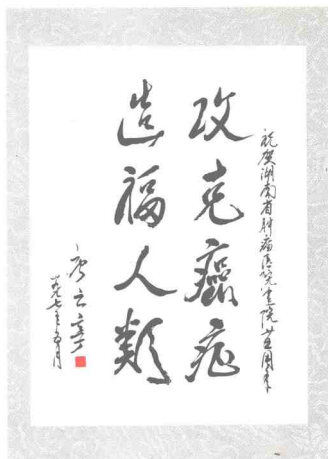 祝贺湖南省肿瘤医院建院廿五周年
攻克癌症
造福人類
一九九七年